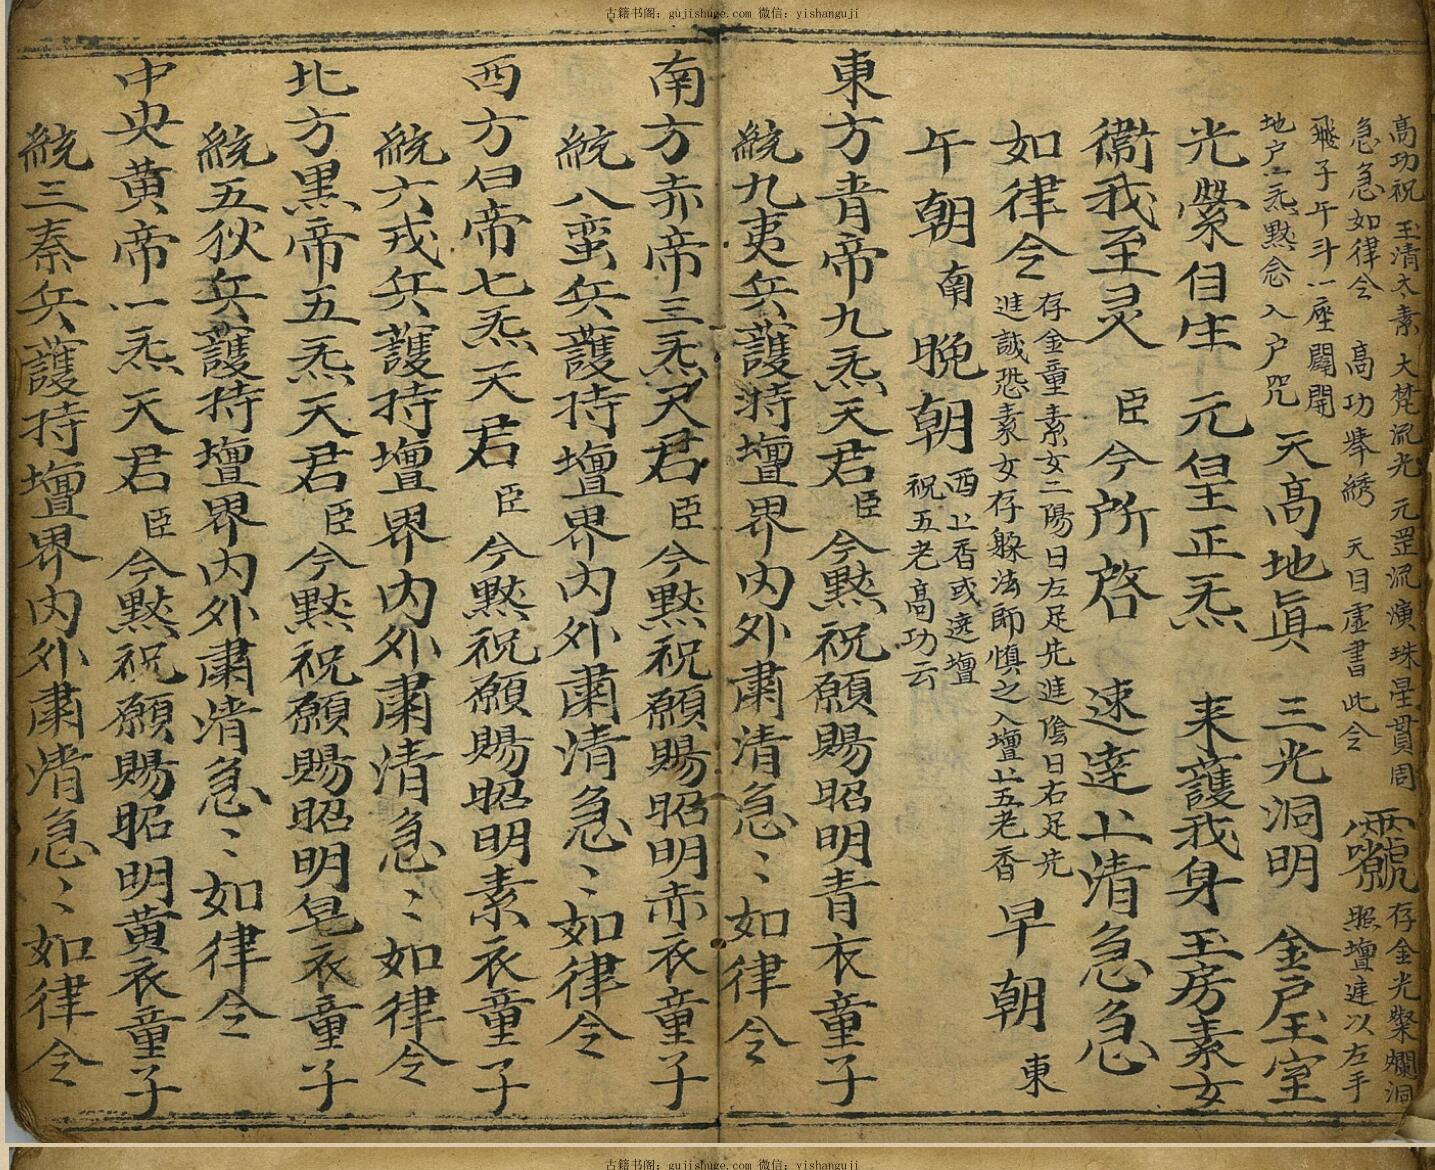 古籍书阁：gujishuge.com 微信：yishanguji
高功祝 玉清大素 大梵流光 元罡流演 珠星貫周
急急如律令 高功捧綉 天目虛書 此令
存金光粲爛洞
照壇進以左手
飛子午斗一座闢開
地户二炁默念入户咒
天高地眞 三光洞明 金戶玉室
光縈自生 元皇正炁 来護我身 玉房素女
衞我至灵 臣今所啓 速達上清急急
如律令
存金童素女二陽日左足先進陰日右足先
進誠恐素女存躲法師慎之入壇上五老香
早朝 東
午朝 南 晚朝
西上香或遶壇
祝五老高功云
東方青帝九炁天君臣今黙祝願賜昭明青衣童子
統九夷兵護持壇界内外肅清急〻如律令
南方赤帝三炁天君臣今黙祝願賜昭明赤衣童子
統八蛮兵護持壇界内外肅清急〻如律令
西方白帝七炁天君臣今黙祝願賜昭明素衣童子
統六戎兵護持壇界内外肅清急〻如律令
北方黒帝五炁天君臣今黙祝願賜昭明皂衣童子
統五狄兵護持壇界内外肅清急〻如律令
中央黄帝一炁天君臣今黙祝願賜昭明黄衣童子
統三秦兵護持壇界内外肅清急〻如律令
古籍书阁：gujishuge.com 微信：yishanguji